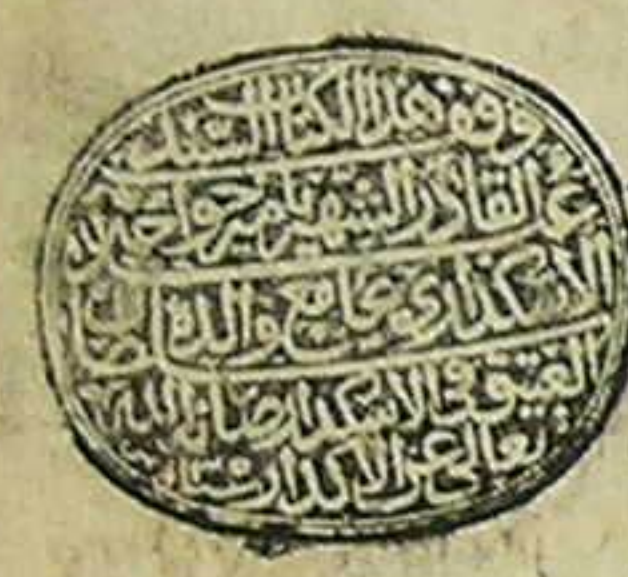 وقف هذا الكتاب السيد
عبد القادر الشهير بامير خواجه
الاسكداري بجامع والدة سلطان
العتيق في الاسكدار صانها الله
تعالى عن الاكدار سنة